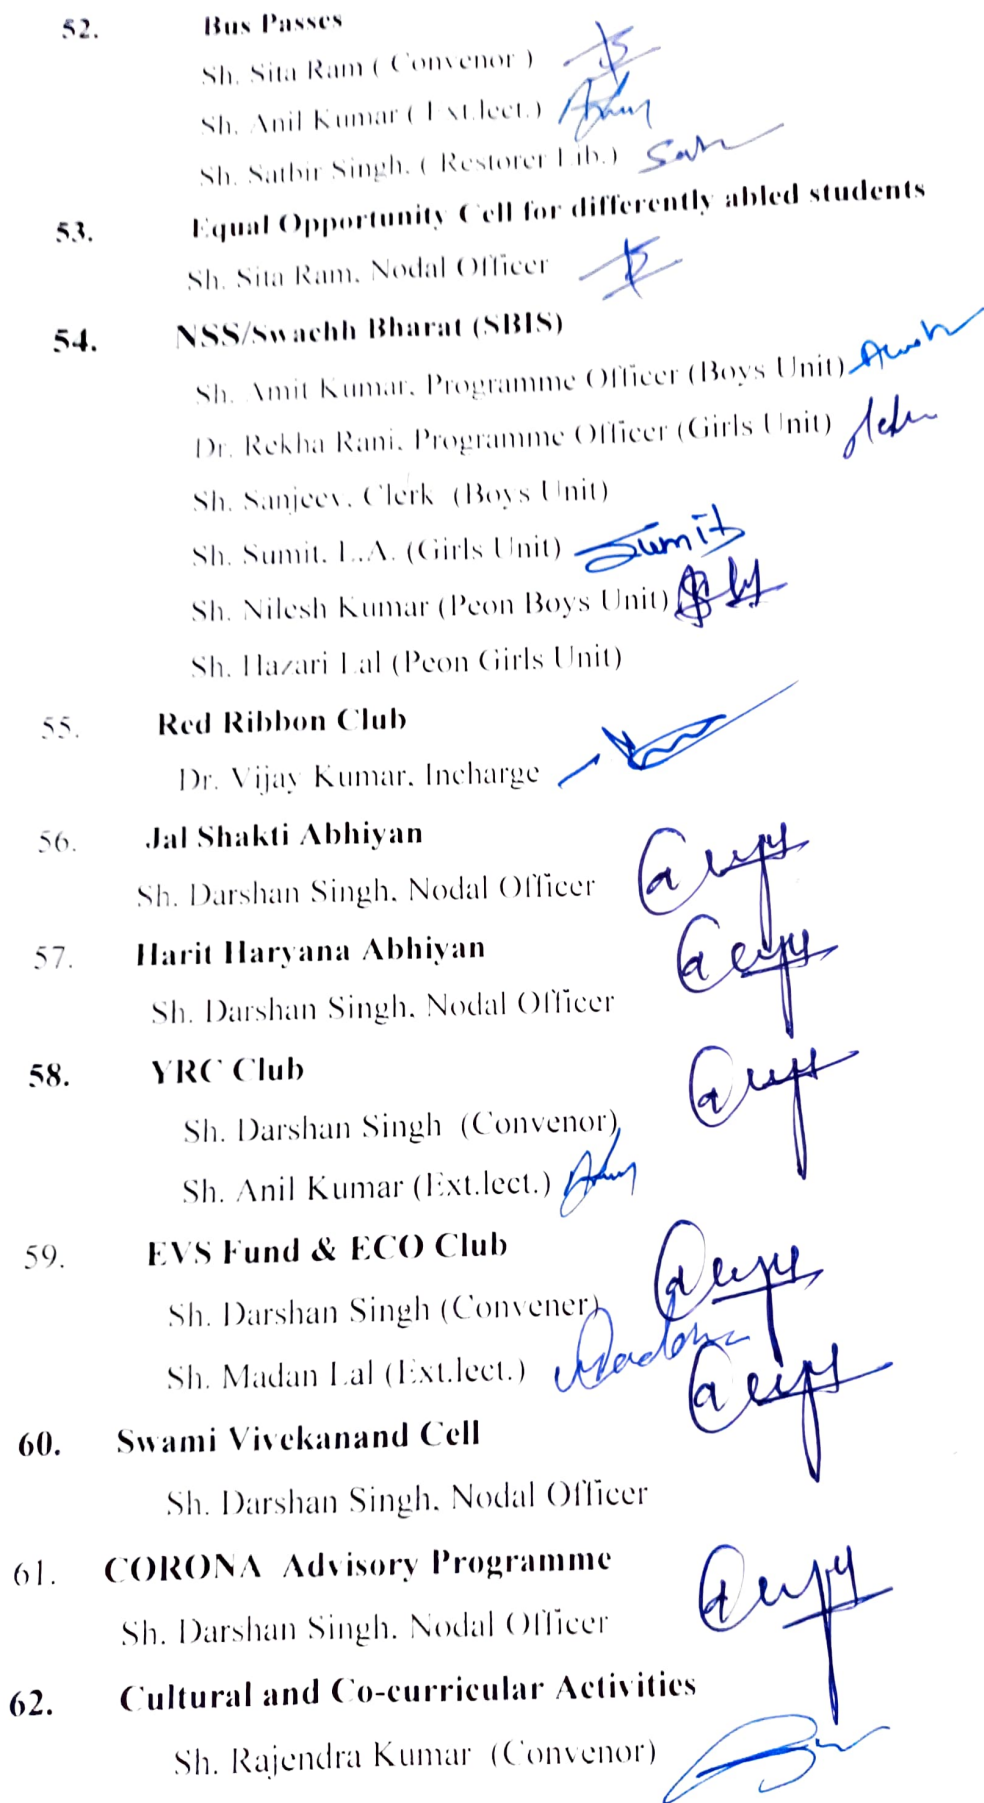 52. Bus Passes
Sh. Sita Ram ( Convenor )
Sh. Anil Kumar ( Ext.lect.)
Sh. Satbir Singh. ( Restorer Lib.)
53. Equal Opportunity Cell for differently abled students
Sh. Sita Ram. Nodal Officer
54. NSS/Swachh Bharat (SBIS)
Sh. Amit Kumar. Programme Officer (Boys Unit)
Dr. Rekha Rani. Programme Officer (Girls Unit)
Sh. Sanjeev. Clerk (Boys Unit)
Sh. Sumit. L.A. (Girls Unit) Sumit
Sh. Nilesh Kumar (Peon Boys Unit)
Sh. Hazari Lal (Peon Girls Unit)
55. Red Ribbon Club
Dr. Vijay Kumar. Incharge
56. Jal Shakti Abhiyan
Sh. Darshan Singh. Nodal Officer
57. Harit Haryana Abhiyan
Sh. Darshan Singh. Nodal Officer
58. YRC Club
Sh. Darshan Singh (Convenor)
Sh. Anil Kumar (Ext.lect.)
59. EVS Fund & ECO Club
Sh. Darshan Singh (Convener)
Sh. Madan Lal (Ext.lect.)
60. Swami Vivekanand Cell
Sh. Darshan Singh. Nodal Officer
61. CORONA Advisory Programme
Sh. Darshan Singh. Nodal Officer
62. Cultural and Co-curricular Activities
Sh. Rajendra Kumar (Convenor)